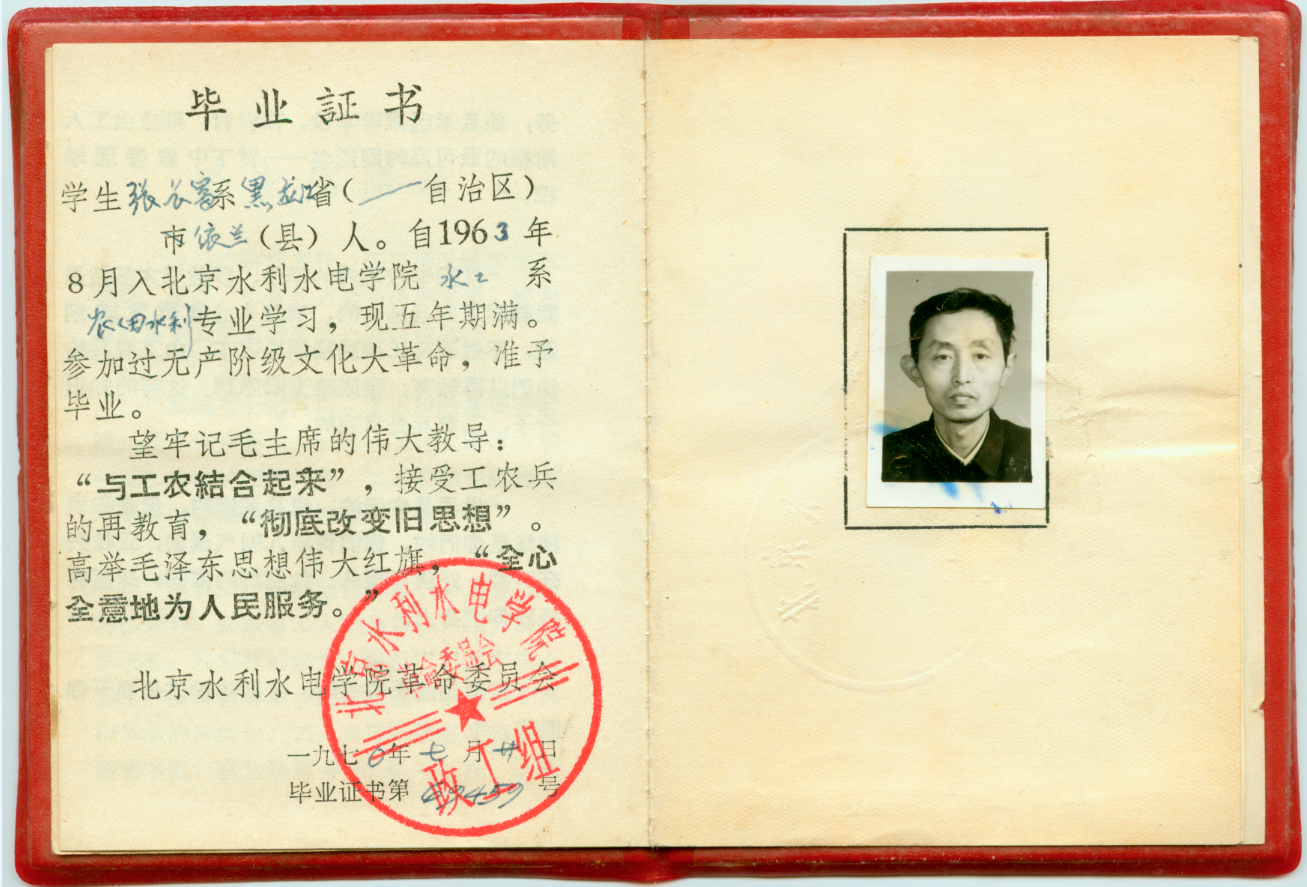 毕业証书
学生张长富系黑龙江省（一自治区）
市依兰（县）人。自1963年
8月入北京水利水电学院水工系
农田水利专业学习，现五年期满。
参加过无产阶级文化大革命，准予
毕业。
望牢记毛主席的伟大教导：
“与工农結合起来”，接受工农兵
的再教育，“彻底改变旧思想”。
高举毛泽东思想伟大红旗，“全心
全意地为人民服务。”
北京水利水电学院革命委员会
一九七0年七月廿日
毕业证书第号
北京水利水电学院
革命委员会
政工组